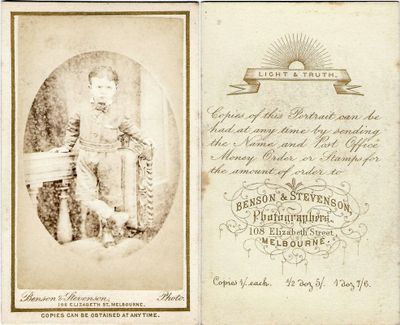 Benson & Stevenson, Photo.
108 ELIZABETH ST. MELBOURNE.
COPIES CAN BE OBTAINED AT ANY TIME.
LIGHT & TRUTH.
Copies of this Portrait can be
had at any time by sending
the Name and Post Office
Money Order or Stamps for
the amount of order to
BENSON & STEVENSON,
Photographers,
108 Elizabeth Street
MELBOURNE.
Copies 1/. each. 1/2 doz 5/. 1 doz 7/6.